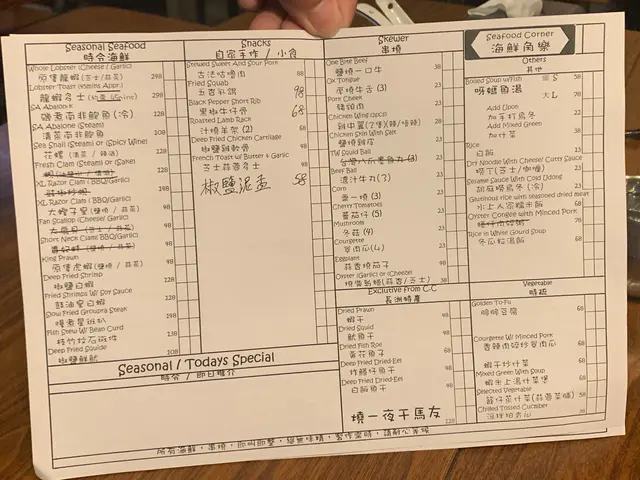 Seasonal Seafood
時令海鮮
Whole Lobster (Cheese / Garlic)
原隻龍蝦(芝士/蒜茸) 298
Lobster Toast (45mins Appr.)
龍蝦多士 298
SA Abalone
鹽煮南非鮑魚 (冷) 128
SA Abalone (Steam)
清蒸南非鮑魚 128
Sea Snail (Steam or Spicy Wine)
花螺 (清蒸 / 辣酒) 128
Fresh Clam (Steam or Sake)
XL Razor Clam (BBQ/Garlic)
XL Razor Clam (BBQ/Garlic)
大蟶子皇(鹽燒 / 蒜茸) 198
Fan Scallop (Cheese/ Garlic)
大扇貝 (芝士 / 蒜茸)
Short Neck Clam (BBQ/Garlic)
King Prawn
原隻虎蝦(鹽燒 / 蒜茸)
Deep Fried Shrimp
椒鹽白蝦 128
Fried Shrimps W/ Soy Sauce
豉油皇白蝦 128
Sour Fried Groupra Steak
慢煮星斑扒 298
Fish Stew W/ Bean Curd
枝竹炆石斑件 128
Deep Fried Squide
椒鹽鮮魷 108
Snacks
自家手作 / 小食
Stewed Sweet And Sour Pork
古法咕嚕肉 88
Fried Squab
五香乳鴿 78
Black Pepper Short Rib
黑椒牛仔骨 68
Roasted Lamb Rack
汁燒羊架 (2) 68
Deep Fried Chicken Cartilage
椒鹽雞軟骨 98
French Toast W/ Butter & Garlic
芝士蒜蓉多士 98
椒鹽泥孟 58
Skewer
串燒
One Bite Beef
鹽燒一口牛 38
Ox Tongue
厚燒牛舌 (3) 23
Pork Cheek
豬頸肉 38
Chicken Wing (2pcs)
Chicken Skin With Salt
鹽燒雞皮 38
TW Squid Ball
Beef Ball
Corn
粟一燒 (3)
Cherry Tomatoes
蕃茄仔 (5)
Mushroom
冬菇 (4)
Courgette
翠肉瓜(4)
Eggplant
蒜香燒茄子
Oyster (Garlic or (Cheeze)
燒廣島蠔(蒜香/芝士) 38
Exclutive From C.C
長洲特產
Dried Prawn
蝦干 98
Dried Squid
魷魚干 58
Dried Fish Roe
黃花魚子 68
Deep Fried Dried-Eel
炸鱔仔魚干 98
Deep Fried Dried-Eel
白飯魚干 98
燒一夜干馬友 128
Seafood Corner
海鮮角樂
Others
其他
Boiled Soup w/Fish 三 S 58
呀媽魚湯 大L 78
Add Udon
加手打烏冬 20
Add Mixed Green
加什菜 38
Rice
白飯
Dry Noodle With Cheese/ Cutty Sauce
撈丁(芝士/咖喱) 23
Sesame Sauce With Cold Udong
胡麻撈烏冬 (冷) 23
Glutinous rice with seasoned dried meat
水上人家糯米飯 68
Oyster Congee with Minced Pork
蠔仔肉碎粥 78
Rice in White Gourd Soup
冬瓜粒湯飯 68
Vegetable
時蔬
Golden To-Fu
啲啲豆腐 68
Courgette W/ Minced Pork
香辣肉碎炒翠肉瓜 68
蝦干炒什菜 68
Mixed Green With Soup
蝦米上湯什菜煲 68
Selected Vegetable
58
Chilled Tossed Cucumber
38
Seasonal / Todays Special
時令 / 即日推介
所有海鮮，串燒，即叫即整，絕無味精，製作需時，請耐心等候